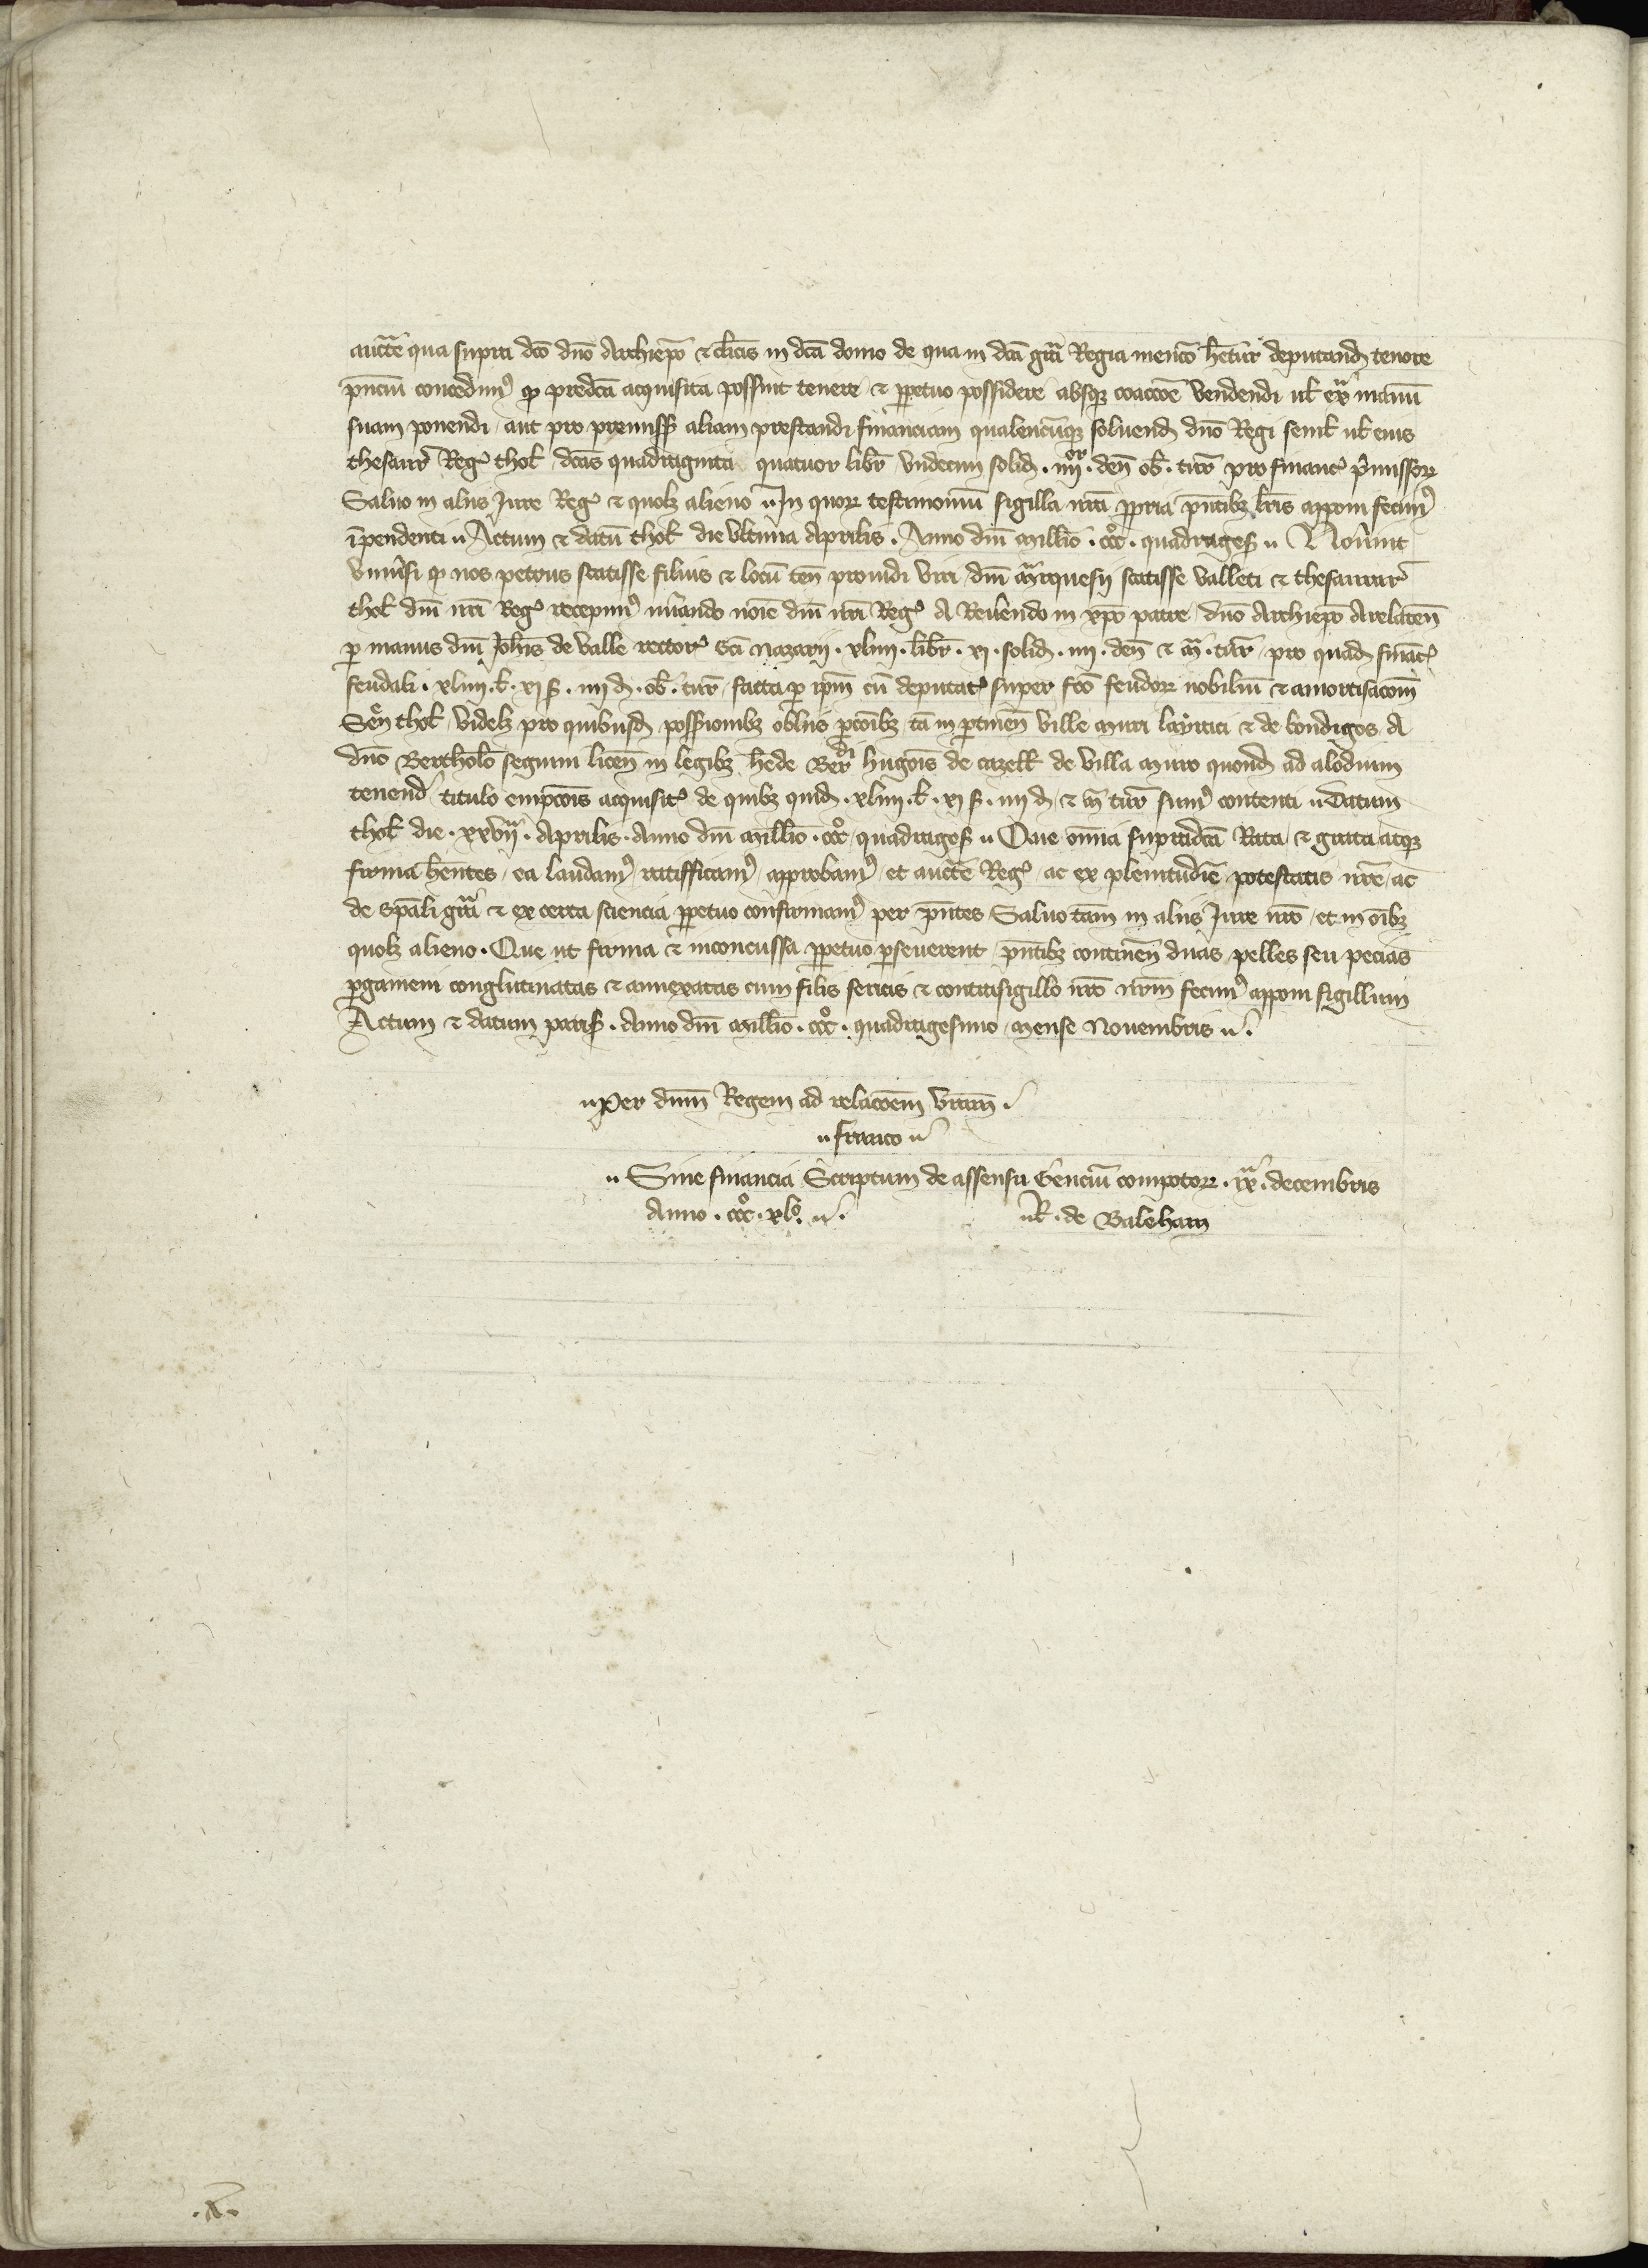 aucte qua supra dco dno Archiepo & clicis in dca domo de qua in dca gra Regia mencio hetur deputand tenore
pncium concedim' q predca acquisita possint tenere & ppetuo possidere absq coaccoe vendendi ul ex manu
suam ponendi aut pro premiss aliam prestandi financiam qualencumq soluend dno Regi semel ul eius
thesaur Reg thol dcas quadraginta quatuor libr vndecim solid . iiii or . den ob . tur pro financ pmissor
Saluo in aliis Jure Reg & quolz alieno In quor testimonium sigilla nra ppria pntibz lris apponi fecim'
ipendenti Actum & datum thol die vltima Aprilis . Anno dni millio . ccc o . quadrages Nouint
vniusi q nos petrus scatisse filius & locum ten prouidi viri dni marquesii scatisse valleti & thesaurar
thol dni nri Reg recepim' nomie dni nri Reg A Reuendo in xpo patre dno Archiepo Arelaten
p manus dni Johis de valle rector sci Nazarii . xliiii . libr . xi . solid . iiii . den & m . tur pro quad financ
feudali . xliiii . l . xi s . iiii d . ob . tur facta p ipm cum deputat super fco feudor nobilium & amortisacom
Sen thol videlz pro quibusd possionibz obliis pcoibz tam in ptinen ville muri & de bondigos A
dno Bertholo seguini licen in legibz hede Berdi hugois de cazell de villa muro quond ad alodium
tenend titulo empcois acquisit de quibz quid . xliiii . l . xi s . iiii d . & m tur sum' contenti Datum
thol die . xxvii a . Aprilis . Anno dni millio . ccc o quadrages Que omia supradca Rata & grata atq
firma hentes ea laudam' ratifficam' approbam' et aucte Reg ac ex plenitudie potestatis nre ac
de spali gra & ex certa sciencia ppetuo confirmam' per pntes Saluo tam in aliis Jure nro et in oibz
quolz alieno . Que ut firma & inconcussa ppetuo pseuerent pntibz continen duas pelles seu pecias
pgameni conglutinatas & annexatas cum filis sericis & contrasigillo nro nrm fecim' apponi sigillum
Actum & datum paris . Anno dni millio . ccc o . quadragesimo mense Nouembris
Per dnm Regem ad relacoem vram
franco
Sine financia Scriptum de assensu Gencium compotor . ix a . decembris
Anno . ccc o . xl o .
R . de Baleham